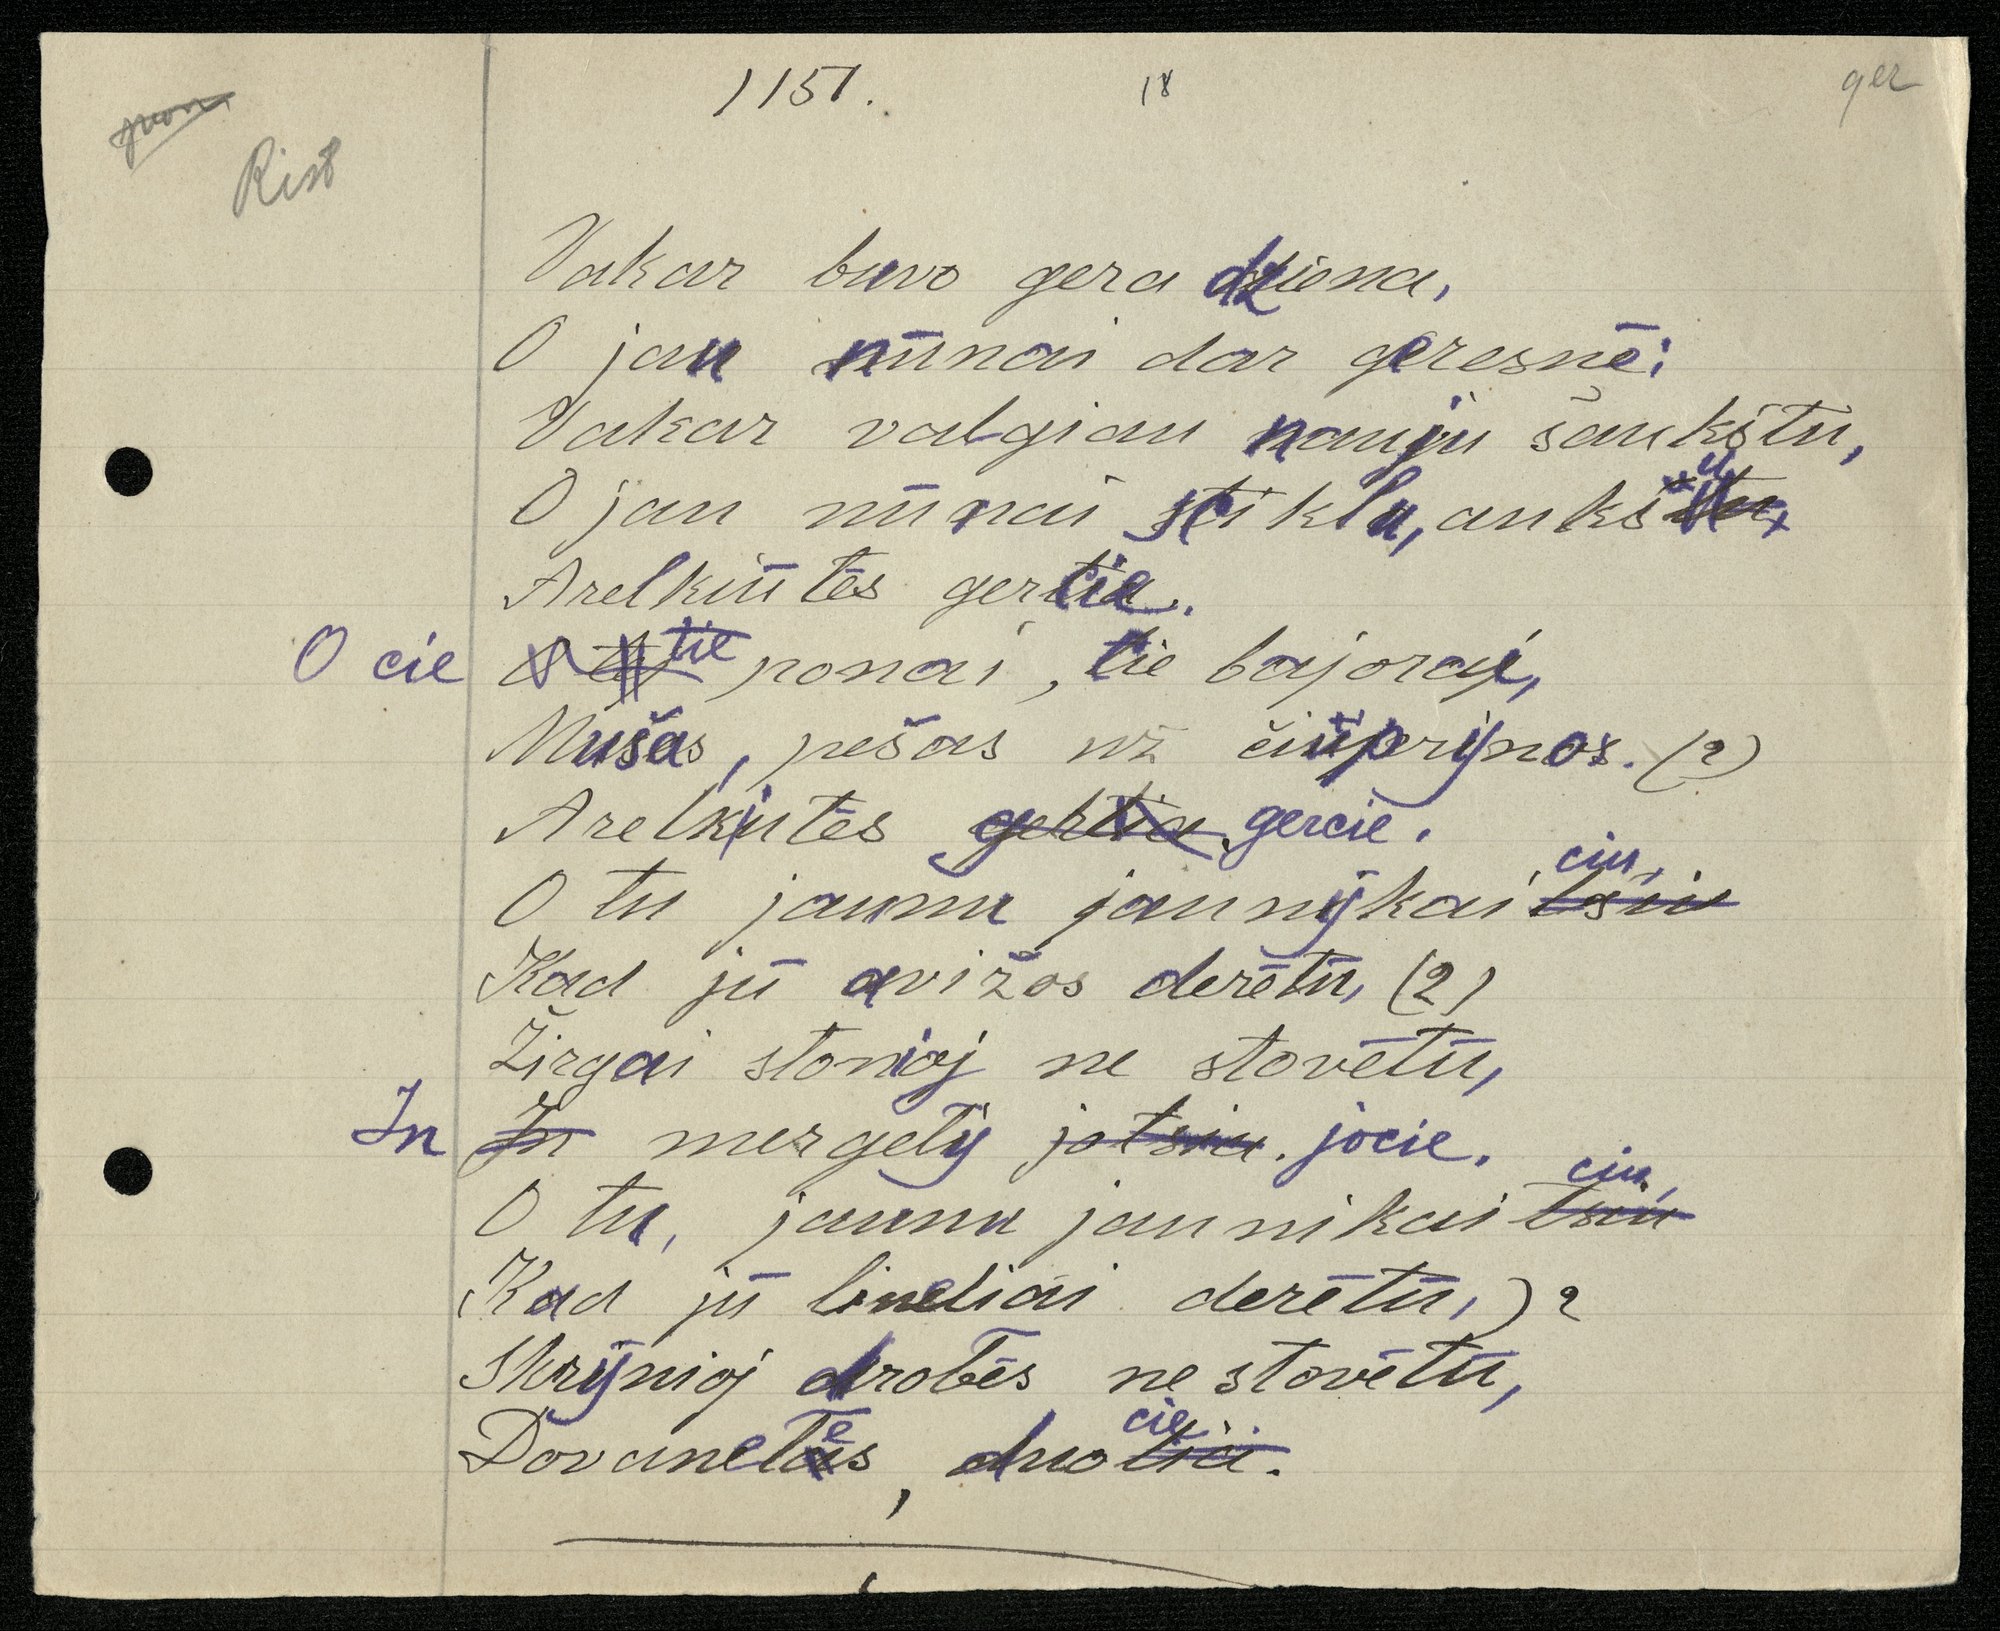 1151. 18 ger
Rist
Vakar buvo gera dziena,
O jau nūnai dar geresnē;
Vakar valgiau nauju šaukštu,
O jau nūnai stiklu, aukštu
Arelkiūtēs gercie.
O cie ponai, tie bajorai,
Mušas, pešas už čiūprȳnos. (2)
Arelkiutēs gercie.
O tu jaunu jaunȳkaiciu,
Kad jū avižos derētū, (2)
Žirgai stonioj ne stovētū,
In mergelȳ jocie.
O tu, jaunu jaunikaiciu,
Kad jū lineliai derētū, )2
Skrȳnioj drobēs ne stovētū,
Dovanelēs, duocie.